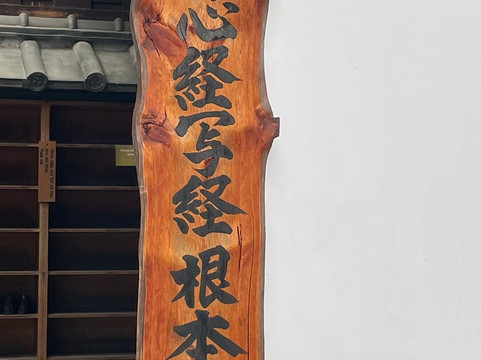 心経写経根本